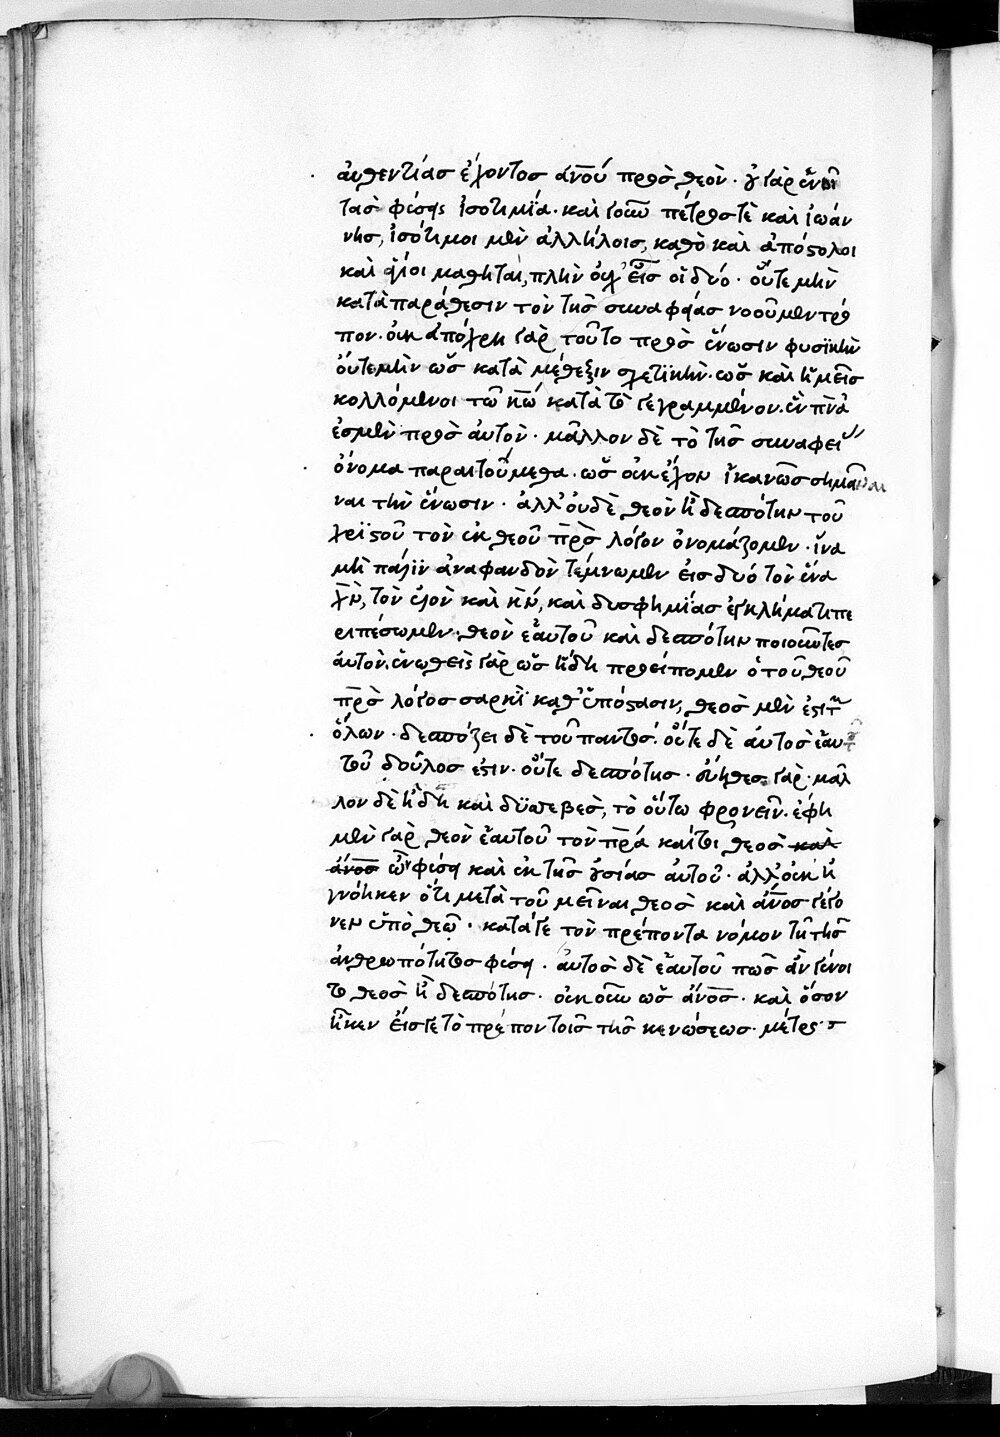 αὐθεντίας ἔχοντος ἀνο̅υ̅ πρὸς θεόν · οὐ γὰρ ἑνοῖ
τὰς φύσεις ἰσοτιμία · καὶ γοῦν πέτρος τὲ καὶ ἰωάν
νης, ἰσότιμοι μὲν ἀλλήλοις, καθὸ καὶ ἀπόστολοι
καὶ ἅγιοι μαθηταὶ, πλὴν οὐχ' εἷς οἱ δύο · οὔτε μὴν
κατὰ παράθεσιν τὸν τῆς συναφείας νοοῦμεν τρό
πον · οὐκ ἀπόχρη γὰρ τοῦτο πρὸς ἕνωσιν φυσικὴν
οὔτε μὴν ὡς κατὰ μέθεξιν σχετικὴν · ὡς καὶ ἡμεῖς
κολλώμενοι τῶ κ̅ω̅ κατὰ τὸ γεγραμμένον · ἓν π̅ν̅ά
ἐσμὲν πρὸς αὐτόν · μᾶλλον δὲ τὸ τῆς συναφεί
ὄνομα παραιτούμεθα · ὡς οὐκ ἔχον ἱκανῶς σημᾶναι
ναι τὴν ἕνωσιν · ἀλλ' οὐδὲ θεὸν ἢ δεσπότην τοῦ
χριστοῦ τὸν ἐκ θεοῦ π̅ρ̅ς λόγον ὀνομάζομεν · ἵνα
μὴ πάλιν ἀναφανδὸν τέμνωμεν εἰς δύο τὸν ἕνα
χ̅ν̅, τὸν υἱὸν καὶ κ̅ν̅, καὶ δυσφημίας ἐγκλήματι πε
ριπέσωμεν · θεὸν ἑαυτοῦ καὶ δεσπότην ποιοῦντες
αὐτόν. ἑνωθεὶς γὰρ ὡς ἤδη προείπομεν ὁ τοῦ θεοῦ
π̅ρ̅ς λόγος σαρκὶ καθ' ὑπόστασιν, θεὸς μὲν ἐστι τῶν
ὅλων · δεσπόζει δὲ τοῦ παντός · οὔτε δὲ αὐτὸς ἑαυ
τοῦ δοῦλος ἐστιν · οὔτε δεσπότης · εὔηθες γὰρ · μᾶλ
λον δὲ ἤδη καὶ δυσσεβὲς, τὸ οὕτω φρονεῖν · ἔφη
μὲν γὰρ θεὸν ἑαυτοῦ τὸν π̅ρ̅α καίτοι θεὸς καὶ
ἄ̅ν̅ο̅ς̅ ὢν φύσει καὶ ἐκ τῆς οὐσίας αὐτοῦ · ἀλλ' οὐκ ἠ
γνόηκεν ὅτι μετὰ τοῦ μεῖναι θεὸς καὶ ἄ̅ν̅ο̅ς γέγο
νεν ὑπὸ θεῶ · κατά γε τὸν πρέποντα νόμον τῆ τῆς
ἀνθρωπότητος φύσει · αὐτὸς δὲ ἑαυτοῦ πῶς ἂν γένοι
το θεὸς ἢ δεσπότης · οὐκοῦν ὡς ἄ̅ν̅ο̅ς · καὶ ὅσον
ἧκεν εἴς γε τὸ πρέπον τοῖς τῆς κενώσεως μέτροις